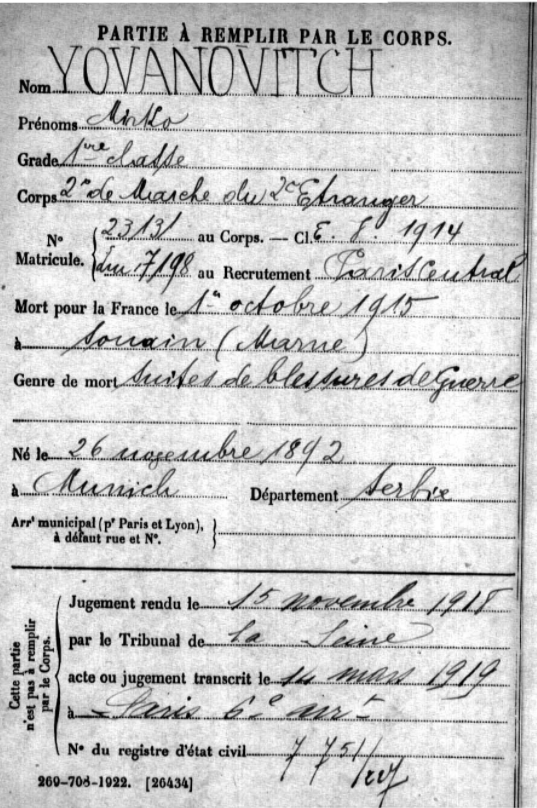 PARTIE À REMPLIR PAR LE CORPS.
Nom YOVANOVITCH
Prénoms Mirko
Grade 1re classe
Corps 2e de Marche du 2e Etranger
N° Matricule. 23131 au Corps. — Cl. E. V. 1914
Lm 7/98 au Recrutement Paris Central
Mort pour la France le 1er octobre 1915
à Souain (Marne)
Genre de mort Suites de blessures de Guerre
Né le 26 novembre 1892
à Munich Département Serbie
Arrt municipal (pr Paris et Lyon),
à défaut rue et N°.
Cette partie
n'est pas à remplir
par le Corps.
Jugement rendu le 15 novembre 1918
par le Tribunal de La Seine
acte ou jugement transcrit le mars 1919
à Paris 6e arrt
N° du registre d'état civil 7751/
269-708-1922. [26434]